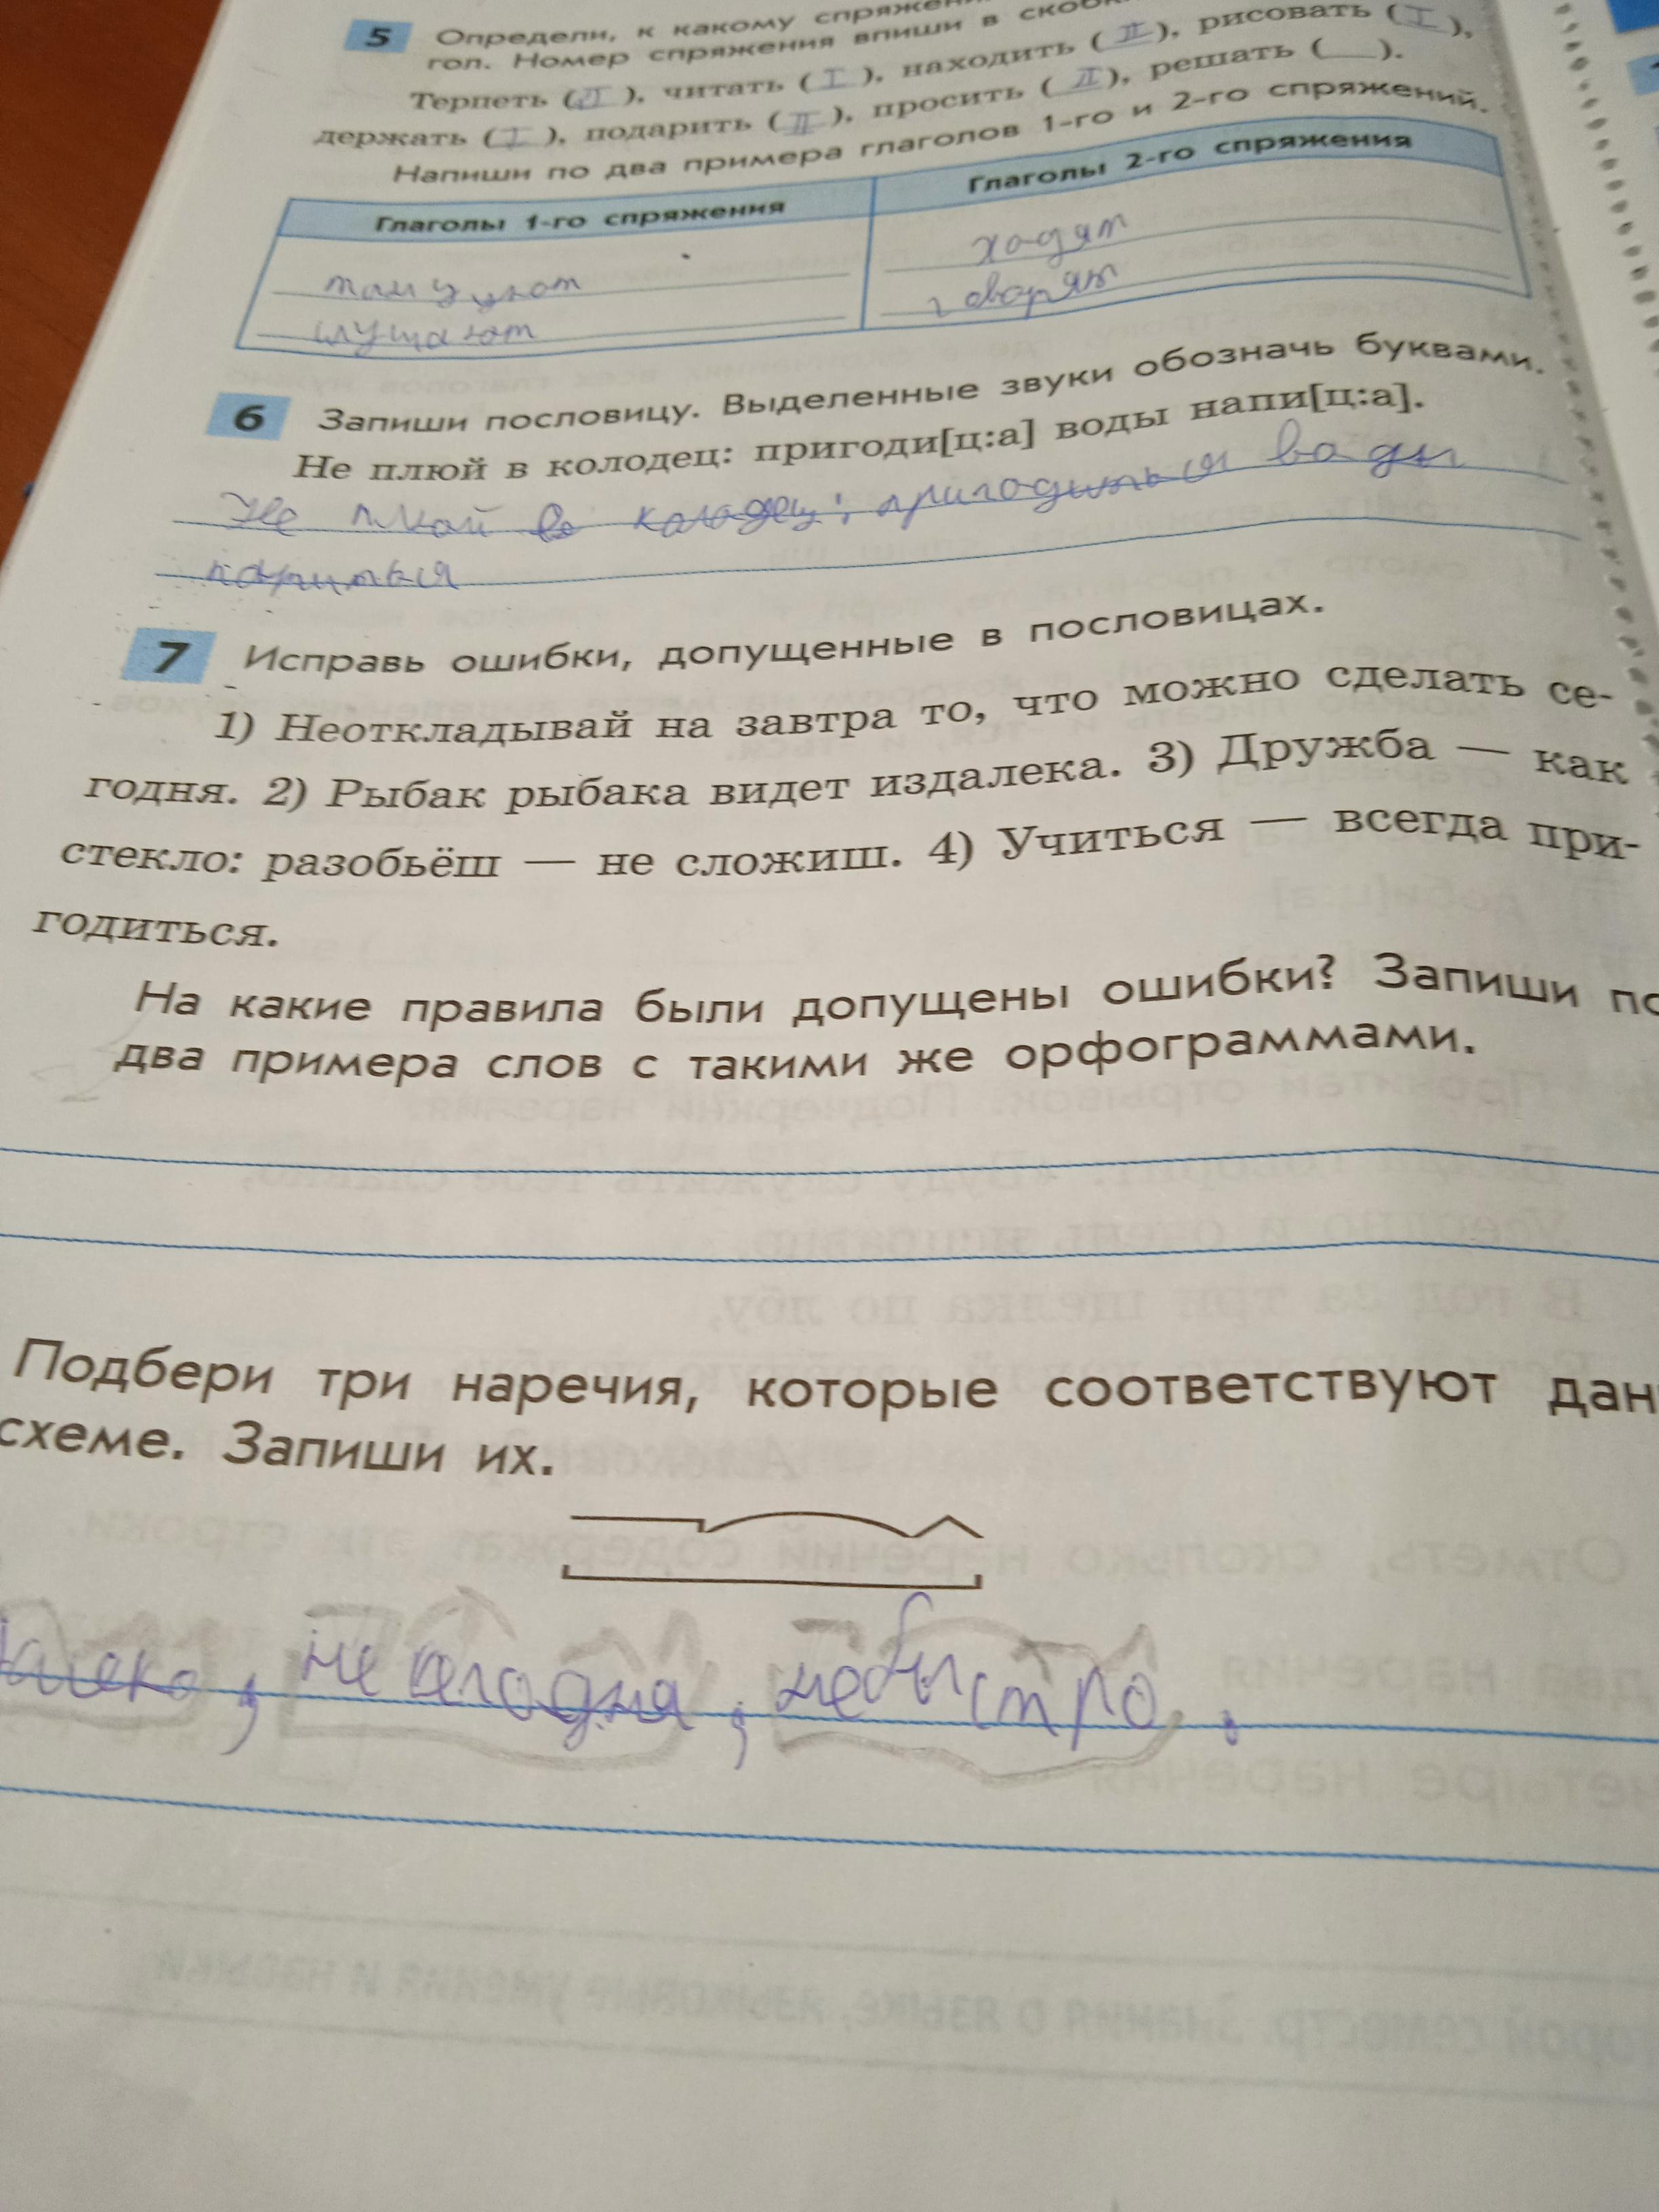 5 Определи, к какому
гол. Номер спряжения впиши в
Терпеть (II), читать (I), находить (II), рисовать (I),
держать (I), подарить (II), просить (II), решать (__).
Напиши по два примера глаголов 1-го и 2-го спряжений.
Глаголы 1-го спряжения Глаголы 2-го спряжения
танцуют ходят
слушают говорят
6 Запиши пословицу. Выделенные звуки обозначь буквами.
Не плюй в колодец: пригоди[ц:а] воды напи[ц:а].
Не плюй в колодец: пригодиться воды
напиться
7 Исправь ошибки, допущенные в пословицах.
1) Неоткладывай на завтра то, что можно сделать се-
годня. 2) Рыбак рыбака видет издалека. 3) Дружба — как
стекло: разобьёш — не сложиш. 4) Учиться — всегда при-
годиться.
На какие правила были допущены ошибки? Запиши
два примера слов с такими же орфограммами.
Подбери три наречия, которые соответствуют
схеме. Запиши их.
, не сегодня, небыстро.